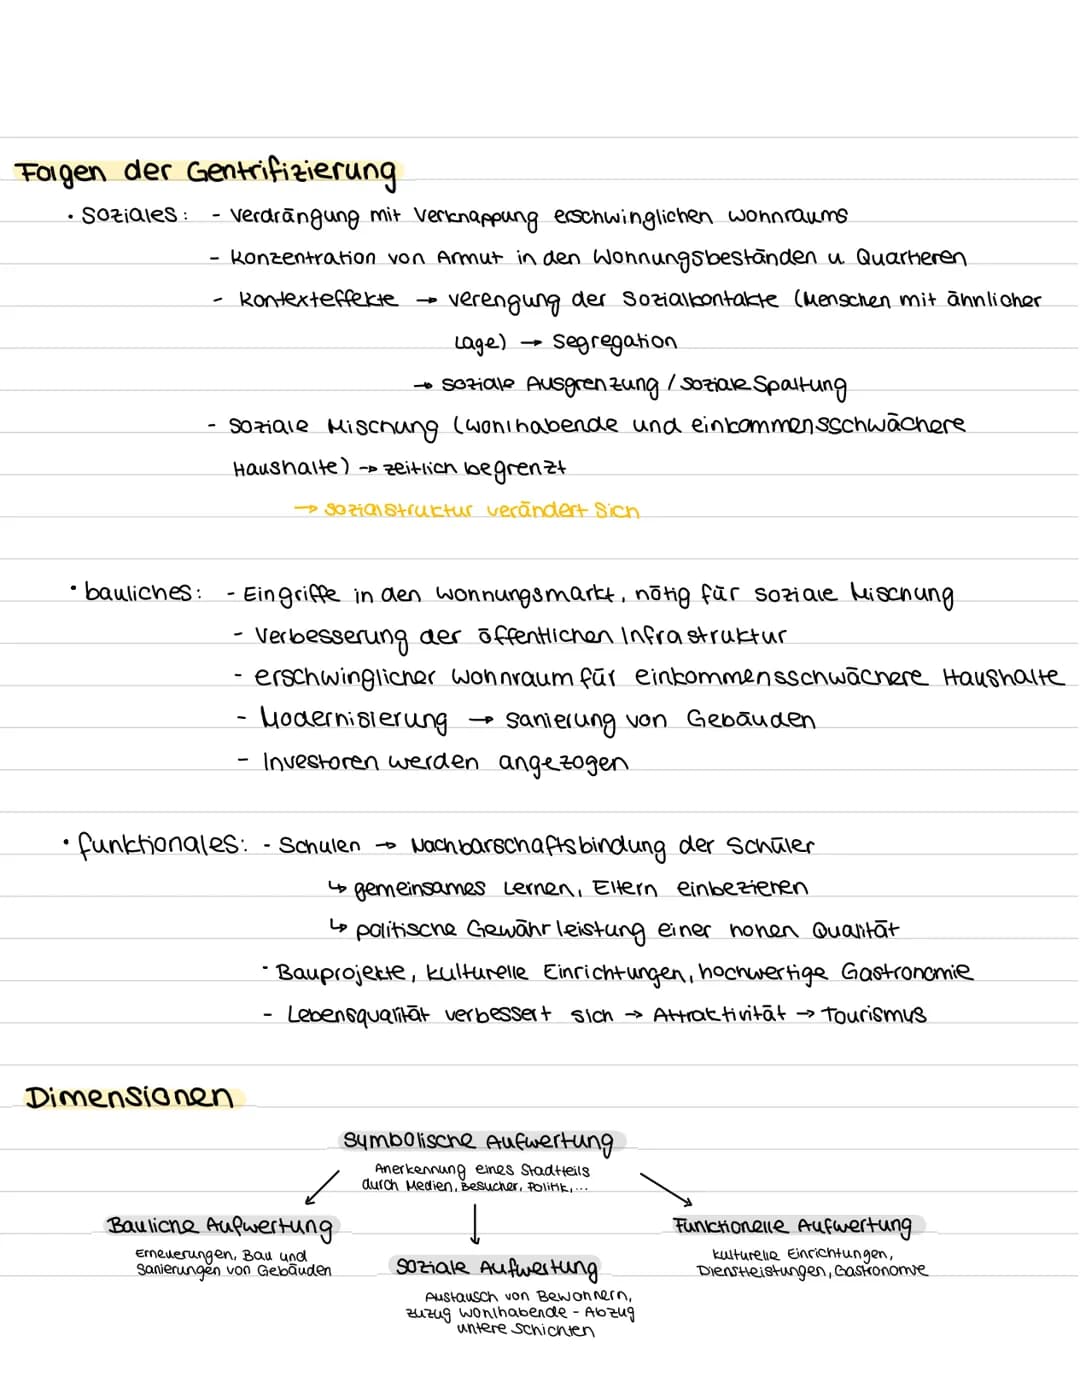 Folgen der Gentrifizierung
• Soziales: - Verdrängung mit Verknappung erschwinglichen Wohnraums
- Konzentration von Armut in den Wohnungsbeständen u. Quartieren
- Kontexteffekte → Verengung der Sozialkontakte (Menschen mit ähnlicher
Lage) → Segregation
→ soziale Ausgrenzung / soziale Spaltung
- Soziale Mischung (wohlhabende und einkommensschwächere
Haushalte) → zeitlich begrenzt
→ Sozialstruktur verändert sich
• bauliches: - Eingriffe in den Wohnungsmarkt, nötig für soziale Mischung
- Verbesserung der öffentlichen Infrastruktur
- erschwinglicher Wohnraum für einkommensschwächere Haushalte
- Modernisierung → Sanierung von Gebäuden
- Investoren werden angezogen
• funktionales: - Schulen → Nachbarschaftsbindung der Schüler
↳ gemeinsames Lernen, Eltern einbeziehen
↳ politische Gewährleistung einer hohen Qualität
- Bauprojekte, kulturelle Einrichtungen, hochwertige Gastronomie
- Lebensqualität verbessert sich → Attraktivität → Tourismus
Dimensionen
Symbolische Aufwertung
Anerkennung eines Stadtteils
durch Medien, Besucher, Politik,...
Bauliche Aufwertung
Erneuerungen, Bau und
Sanierungen von Gebäuden
Soziale Aufwertung
Austausch von Bewohnern,
Zuzug wohlhabende - Abzug
untere Schichten
Funktionelle Aufwertung
kulturelle Einrichtungen,
Dienstleistungen, Gastronomie